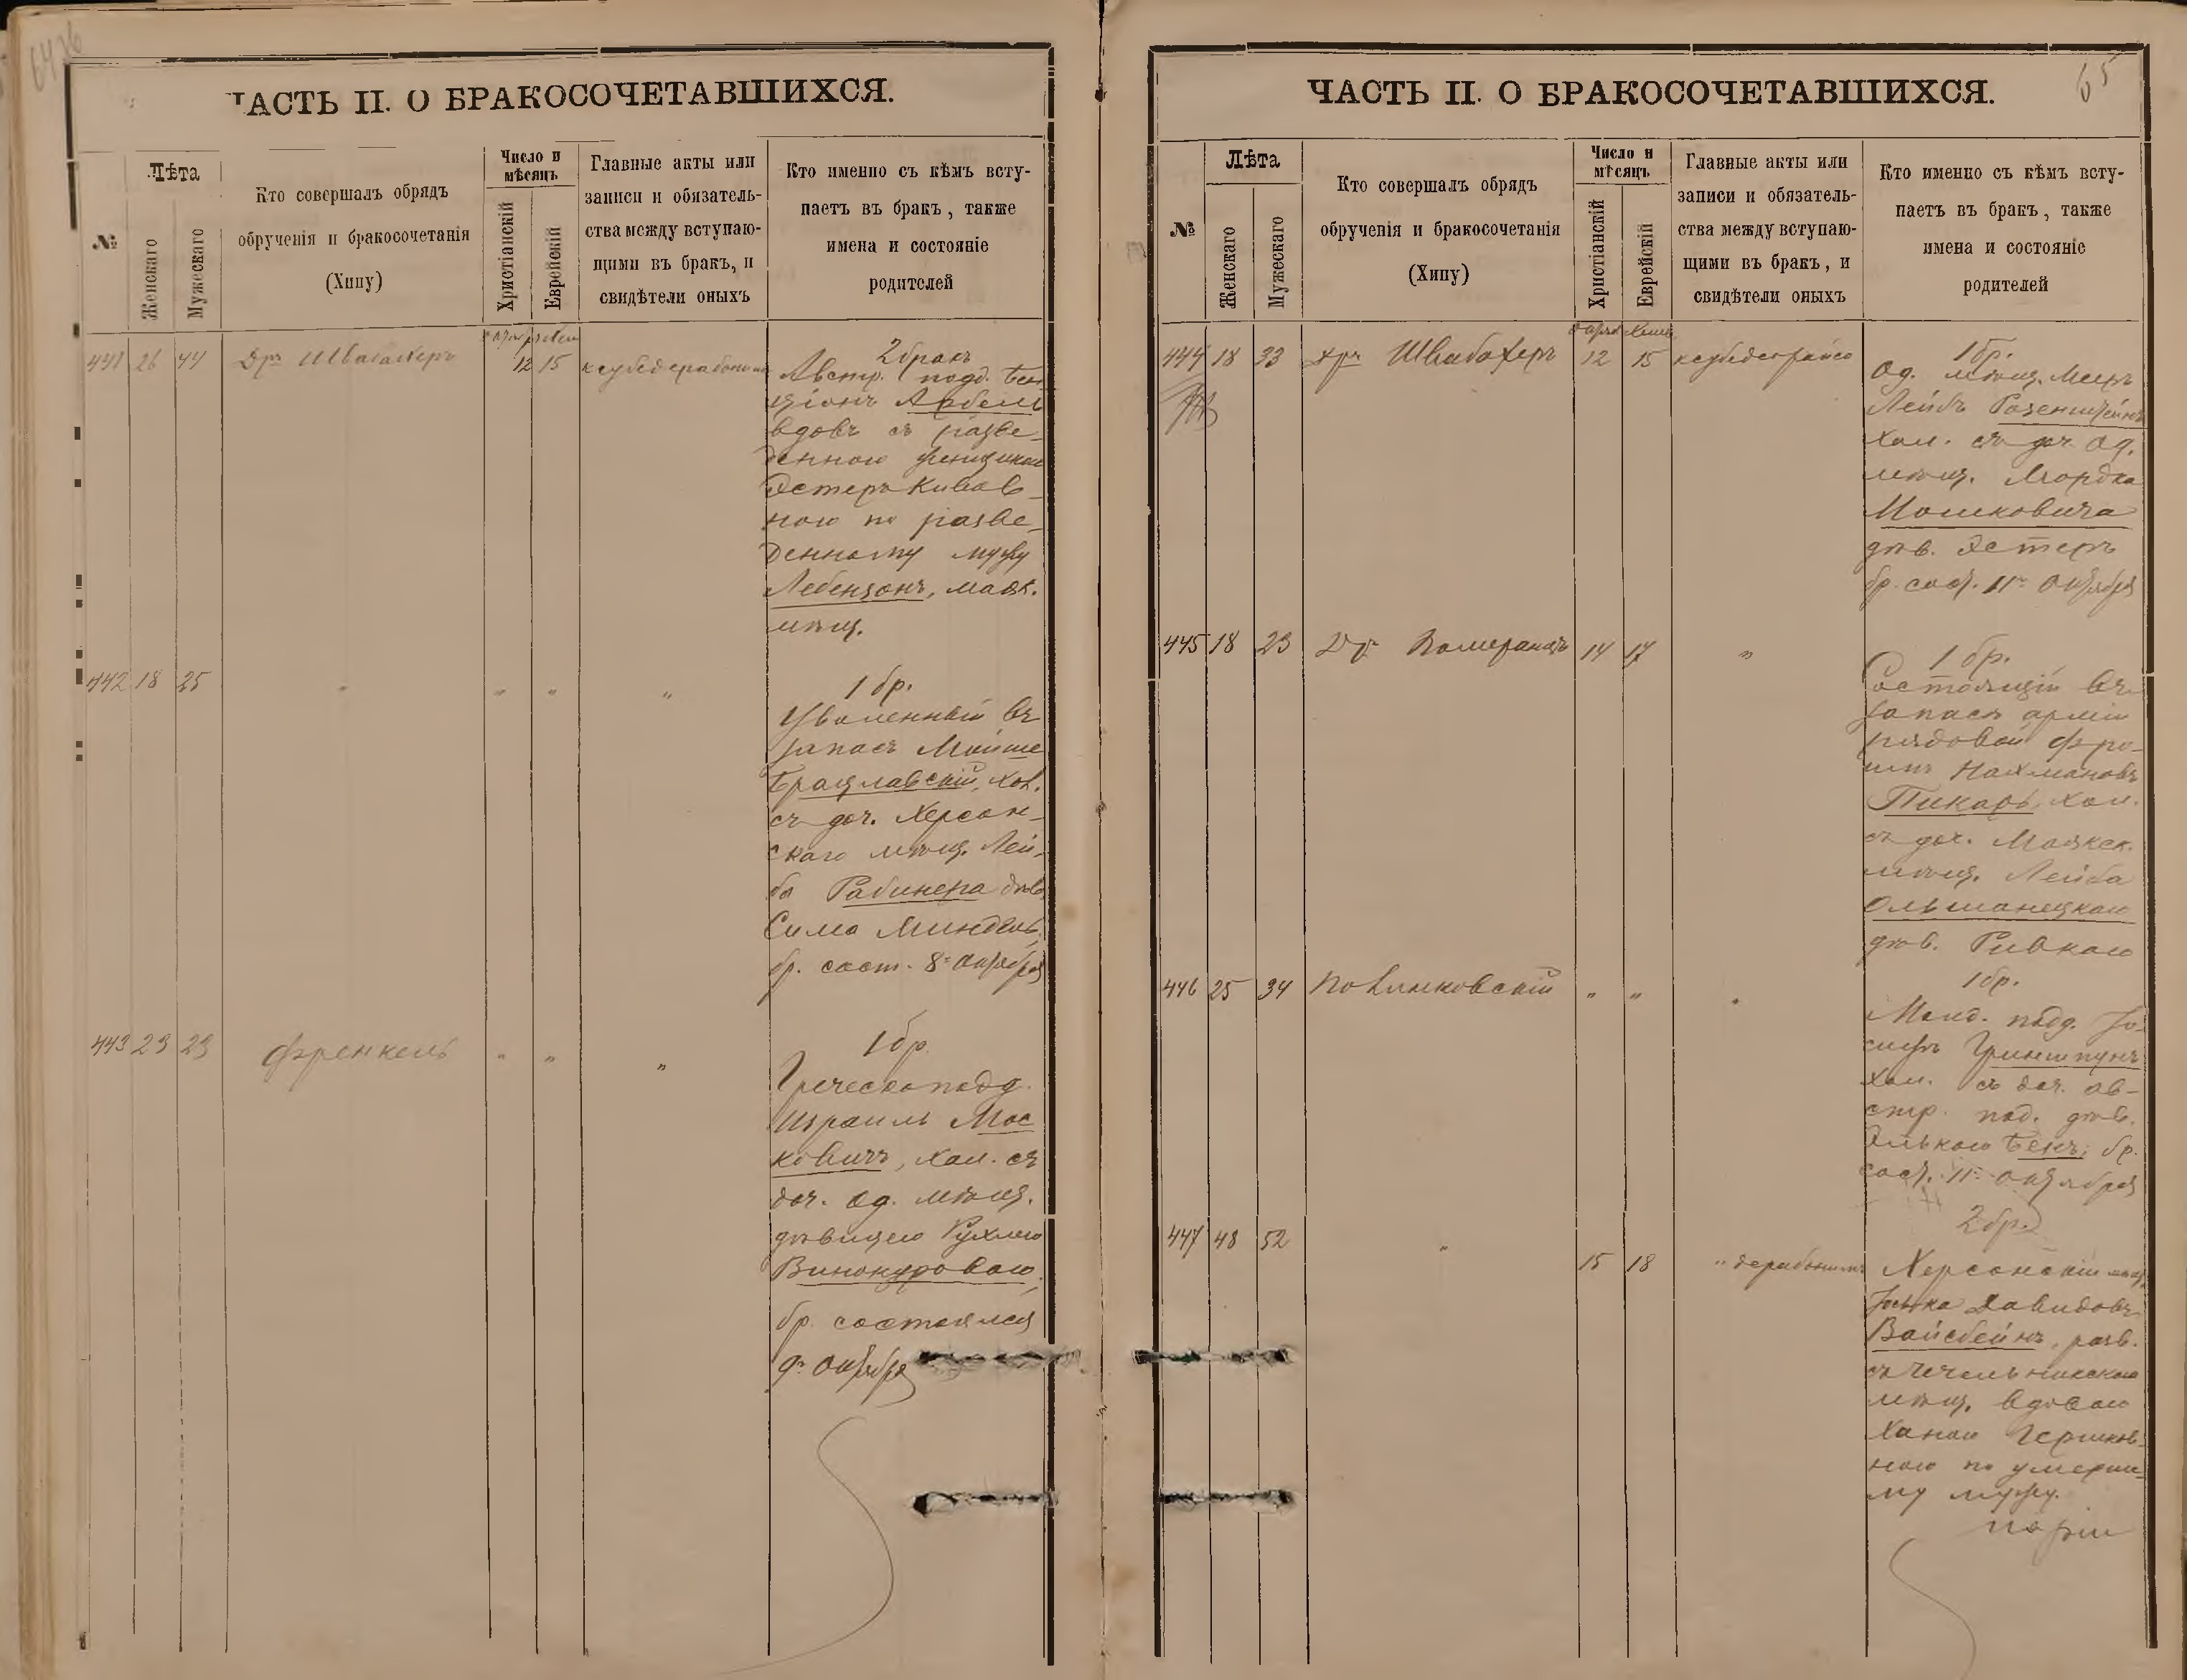 65
ЧАСТЬ II. О БРАКОСОЧЕТАВШИХСЯ.
№
Лѣта
Женскаго
Мужескаго
Кто совершалъ обрядъ
обрученія и бракосочетанія
(Хипу)
Число и
мѣсяцъ
Христіанскій
Еврейскій
Главные акты или
записи и обязатель-
ства между вступаю-
щими въ бракъ, и
свидѣтели оныхъ
Кто именно съ кѣмъ всту-
паетъ въ бракъ, также
имена и состояніе
родителей
441 26 44 Дръ Швабахеръ 12 15
2 бракъ
Австр. подд. Бен
ціонъ Арбель
вдовъ съ разве-
денною
Эстеръ
ною по разве-
денному мужу
Лебензонъ, маяк.
мѣщ.
442 18 25 " " " "
1 бр.
Уволенный въ
запасъ Мойше
Брацлавскій, хол.
съ доч. Херсон-
скаго мѣщ. Лей-
ба Рабинера дѣв.
Сима Миндель,
бр. сост. 8го Октября
443 23 23 Френкель " " "
1 бр.
Греческоподд.
Израиль Мос
ковичъ, хол. съ
доч. Од. мѣщ.
дѣвицею Рухлею
Винокуровою,
бр. состоялся
9го Октября
ЧАСТЬ II. О БРАКОСОЧЕТАВШИХСЯ.
№
Лѣта
Женскаго
Мужескаго
Кто совершалъ обрядъ
обрученія и бракосочетанія
(Хипу)
Число и
мѣсяцъ
Христіанскій
Еврейскій
Главные акты или
записи и обязатель-
ства между вступаю-
щими въ бракъ, и
свидѣтели оныхъ
Кто именно съ кѣмъ всту-
паетъ въ бракъ, также
имена и состояніе
родителей
444 18 33 Дръ Швабахеръ 12 15
1 бр.
Од. мѣщ. Мееръ
Лейбъ Розенштейнъ
хол. съ доч. Од.
мѣщ. Мордка
Мошковича
дѣв. Эстеръ
бр. сост. 11го Октября
445 18 23 Померанцъ 14 17 "
1 бр.
Состоящій въ
запасѣ арміи
рядовой Фро-
имъ Нахмановъ
Пикарь, хол.
съ доч. Маякск.
мѣщ. Лейба
Ольшанецкаго
дѣв. Ривкою
446 25 34 " " "
1 бр.
Молд. подд. Іо-
сифъ Гриншпунъ
хол. съ доч. ав-
стр. под. дѣв.
Элькою Бекъ, бр.
сост. 11го Октября
447 48 52 " 15 18
2 бр.
Херсонскій мѣщ.
Іоська Давидовъ
Вайсбейнъ, разв.
съ Чечельникскою
мѣщ. вдовою
Ханою Гершков-
ною по умерше-
му мужу